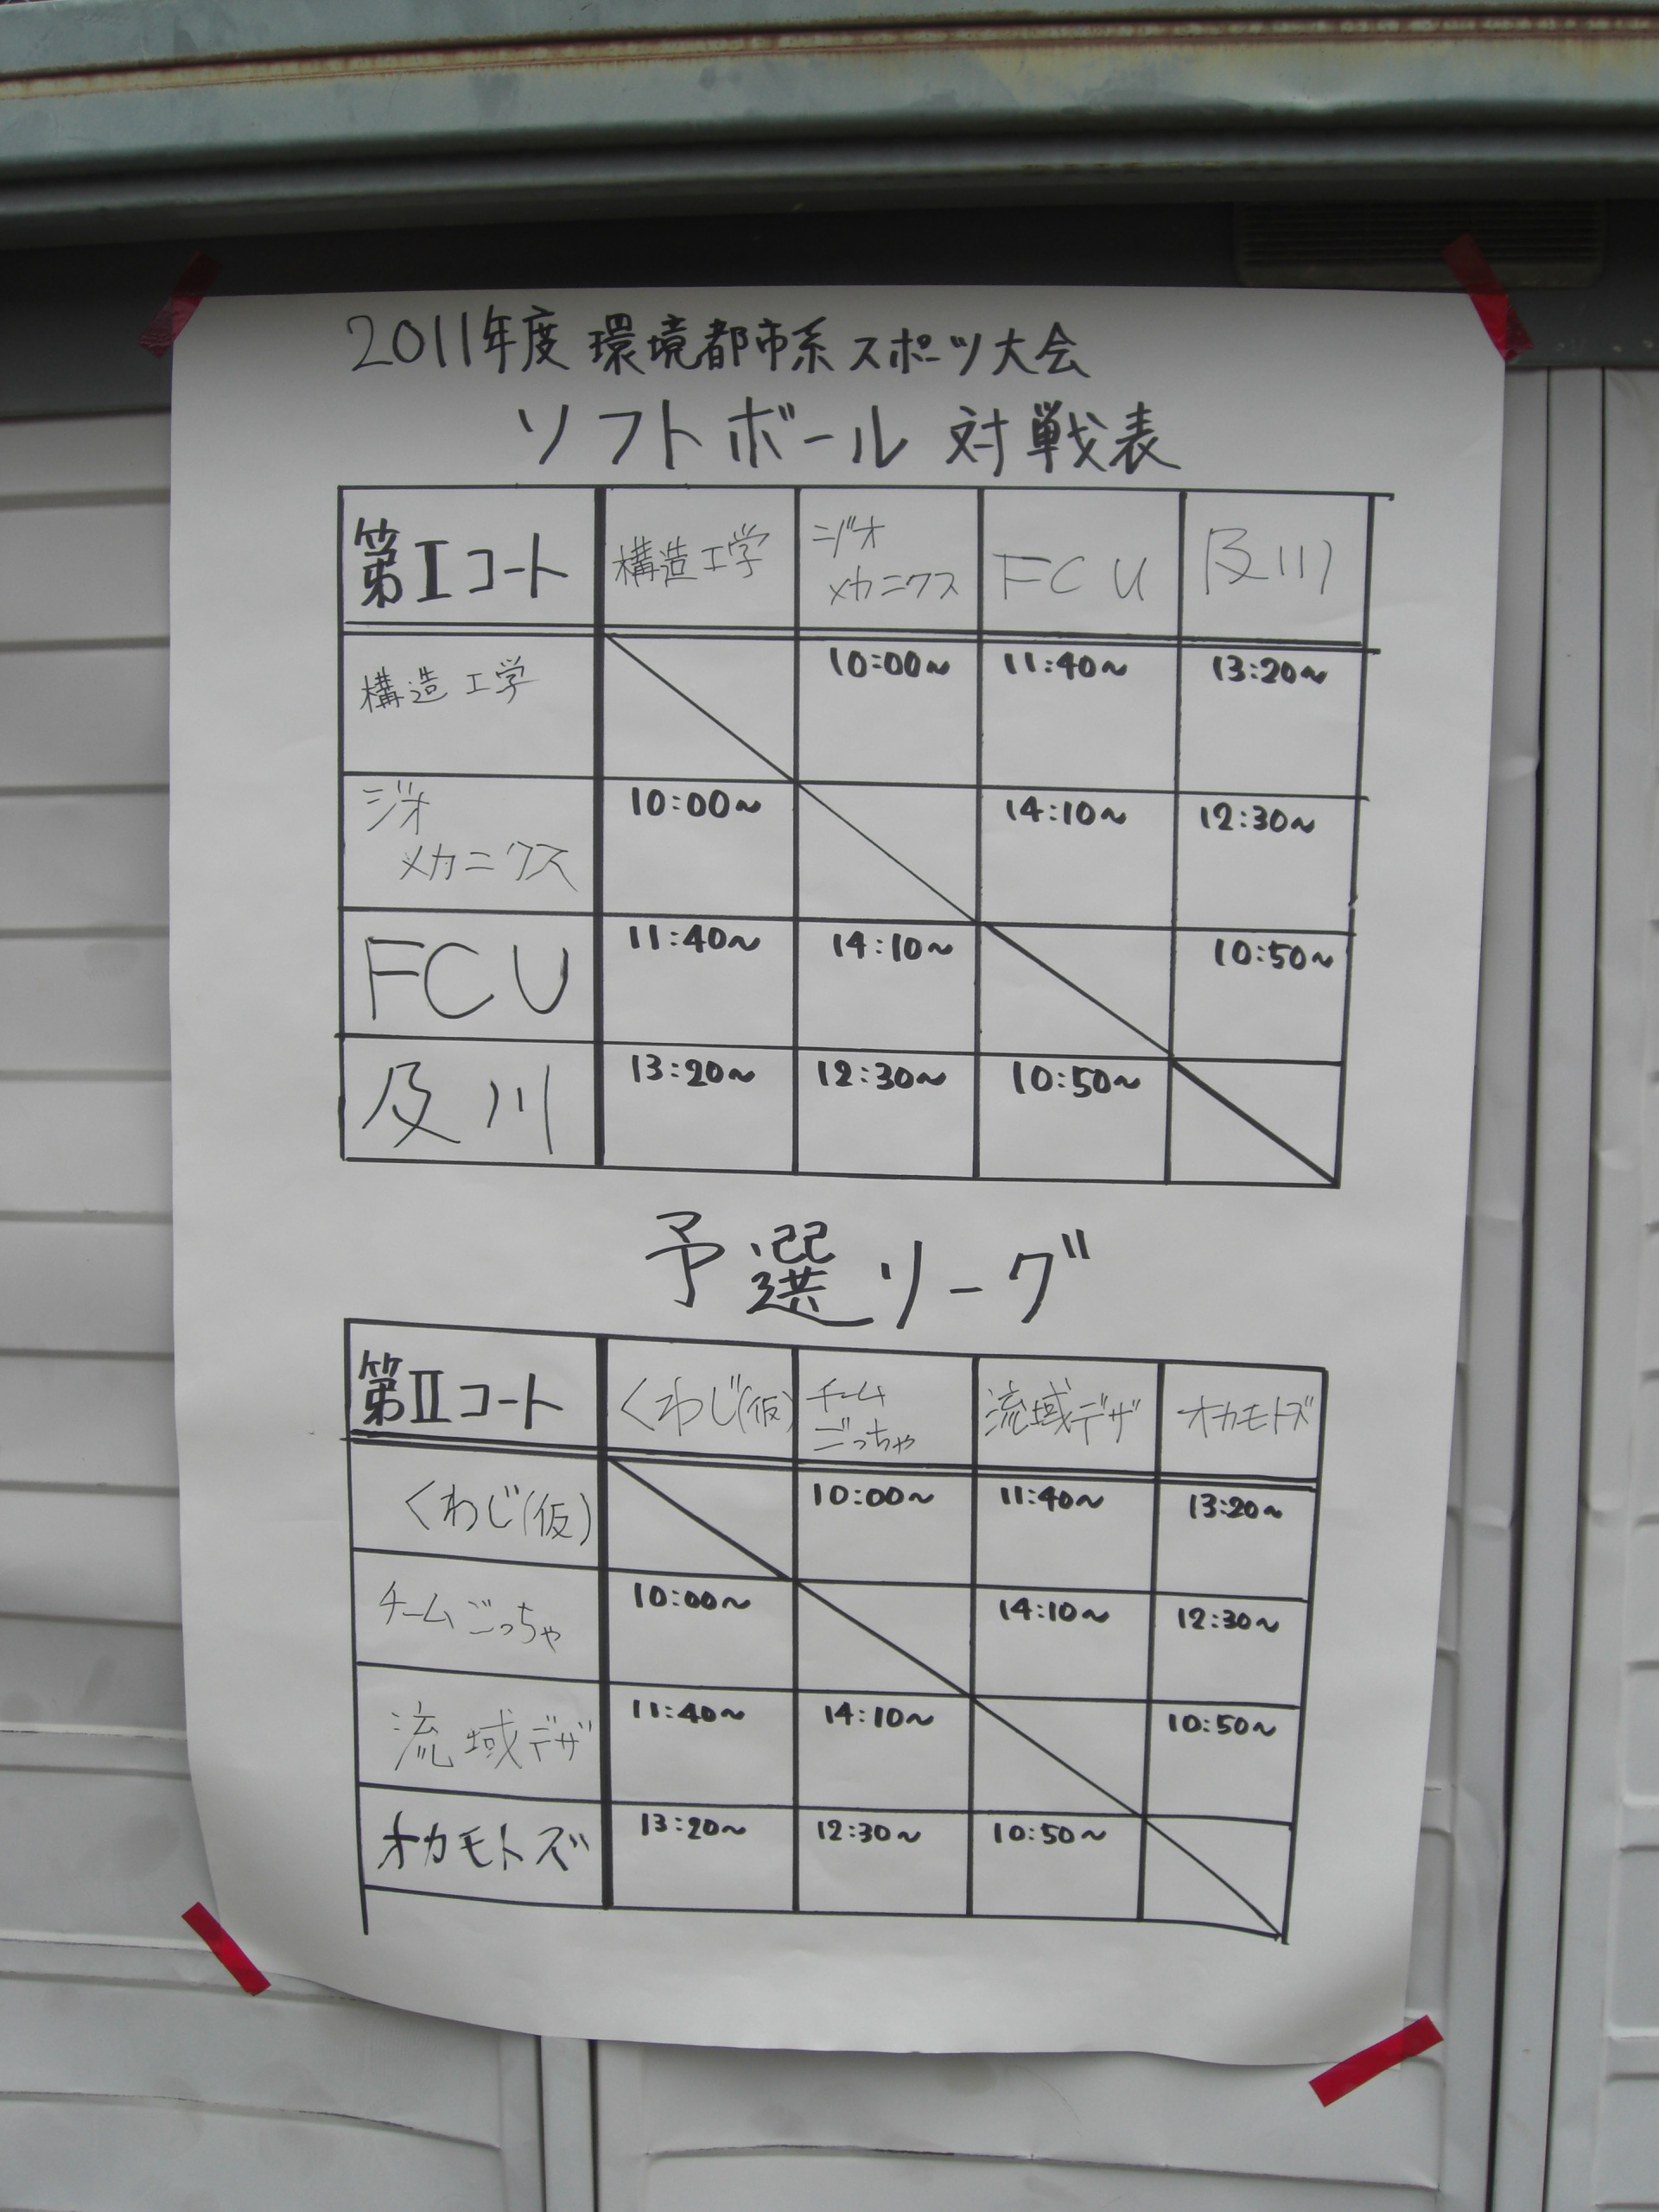 2011年度 環境都市系 スポーツ大会
ソフトボール 対戦表
第Ⅰコート 構造工学 ジオメカニクス FCU 及川
構造工学 10:00~ 11:40~ 13:20~
ジオメカニクス 10:00~ 14:10~ 12:30~
FCU 11:40~ 14:10~ 10:50~
及川 13:20~ 12:30~ 10:50~
予選リーグ
第Ⅱコート くわじ(仮) チームごっちゃ 流域デザ オカモトズ
くわじ(仮) 10:00~ 11:40~ 13:20~
チームごっちゃ 10:00~ 14:10~ 12:30~
流域デザ 11:40~ 14:10~ 10:50~
オカモトズ 13:20~ 12:30~ 10:50~